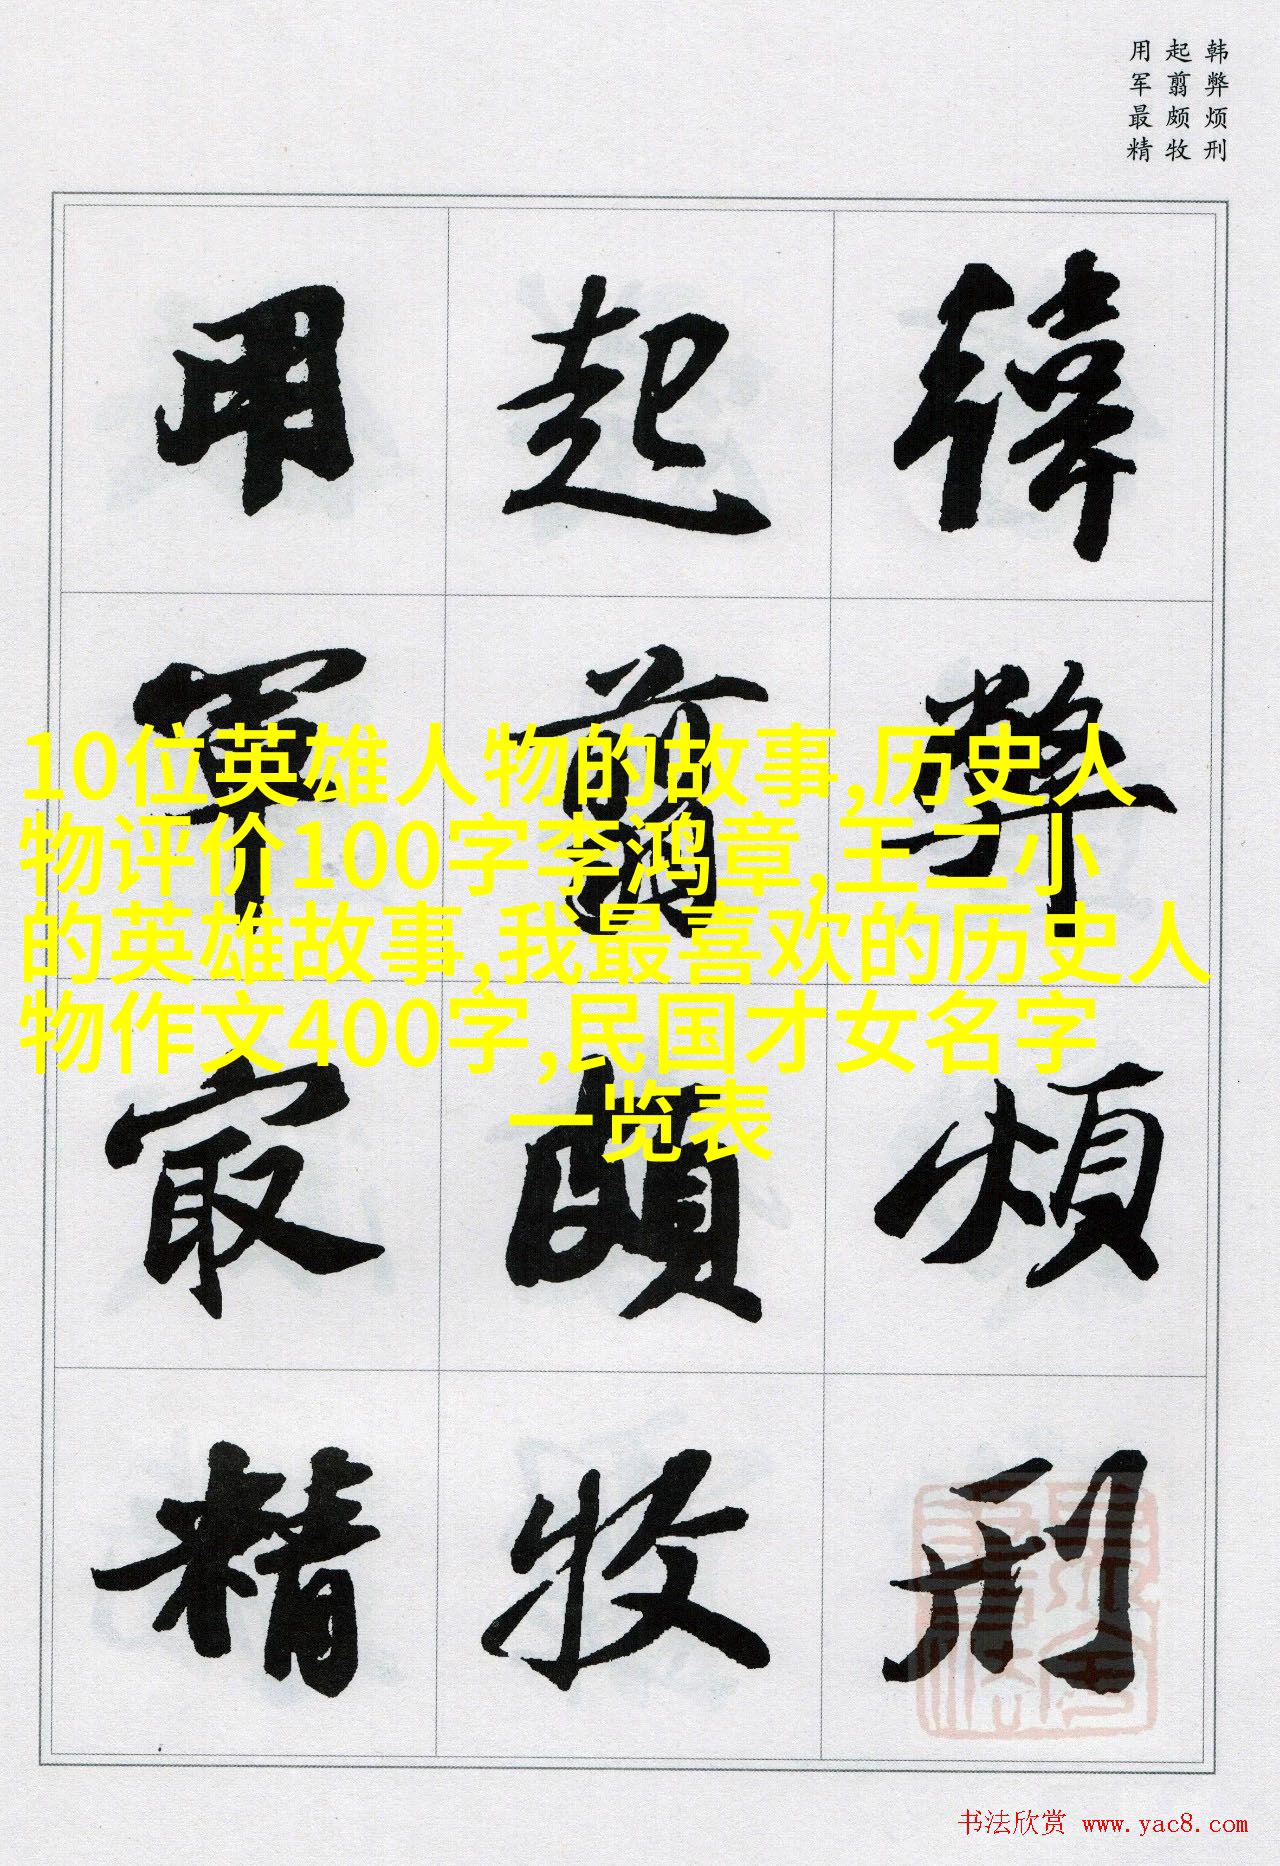 韩弊烦刑
起翦颇牧
用军最精
韓弊煩刑
起翦頗牧
用軍最精
10位英雄人物的故事,历史人
物评价100字李鸿章,王二小
的英雄故事,我最喜欢的历史人
物作文400字,民国才女名字
一览表
书法欣赏 www.yac8.com